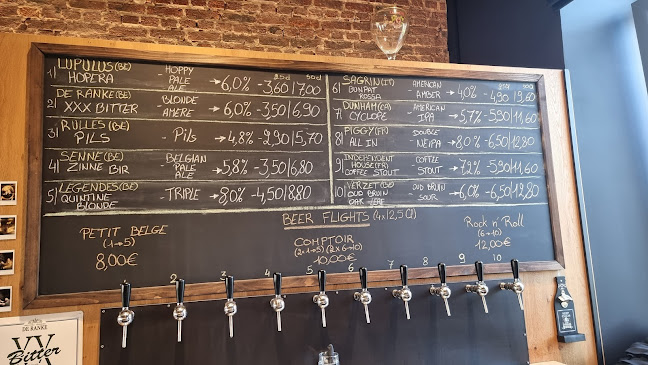 25cl 50cl
1) LUPULUS (BE) HOPERA - HOPPY PALE ALE → 6,0% - 3,60 | 7,00
2) DE RANKE (BE) XXX BITTER - BLONDE AMÈRE → 6,0% - 3,50 | 6,90
3) RULLES (BE) PILS - Pils → 4,8% - 2,90 | 5,70
4) SENNE (BE) ZINNE BIR - BELGIAN PALE ALE → 5,8% - 3,50 | 6,80
5) LEGENDES (BE) QUINTINE BLONDE - TRIPLE → 8,0% - 4,50 | 8,80
6) SAGRIN (IT) BUNPAT ROSSA - AMERICAN AMBER → 4,0% - 4,90 | 9,60
7) DUNHAM (CA) CYCLOPE - AMERICAN IPA → 5,7% - 5,90 | 11,60
8) PIGGY (FR) ALL IN - DOUBLE NEIPA → 8,0% - 6,50 | 12,80
9) INDEPENDENT HOUSE (FR) COFFEE STOUT - COFFEE STOUT → 7,2% - 5,90 | 11,60
10) VERZET (BE) OUD BRUIN OAK - OUD BRUIN SOUR → 6,0% - 6,50 | 12,80
BEER FLIGHTS (4x12,5Cl)
PETIT BELGE
(1→5)
8,00€
COMPTOIR
(2x1→5) (2x6→10)
10,00€
Rock n' Roll
(6→10)
12,00€
2 3 4 5 6 7 8 9 10
DE RANKE
XX
Bitter